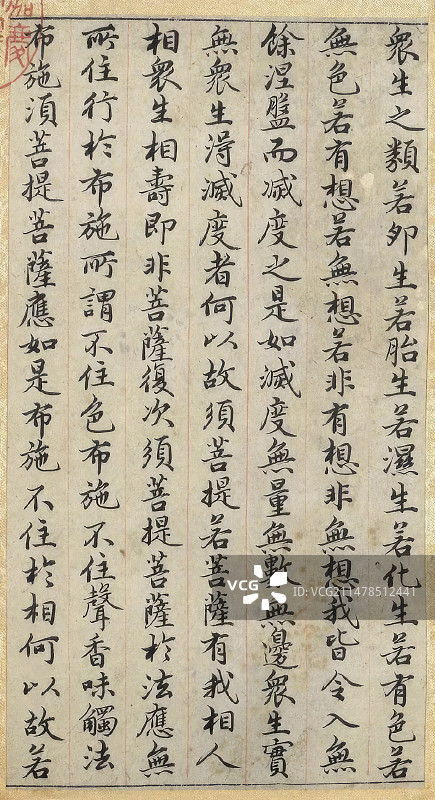 衆生之類若卵生若胎生若濕生若化生若有色若
無色若有想若無想若非有想非無想我皆令入無
餘涅盤而滅度之是如滅度無量無數無邊衆生實
無衆生淂滅度者何以故須菩提若菩薩有我相人
相衆生相壽即非菩薩復次須菩提菩薩於法應無
所住行於布施所謂不住色布施不住聲香味觸法
布施湏菩提菩薩應如是布施不住於相何以故若
VCG
VCG.COM
ID:VCG211478512441